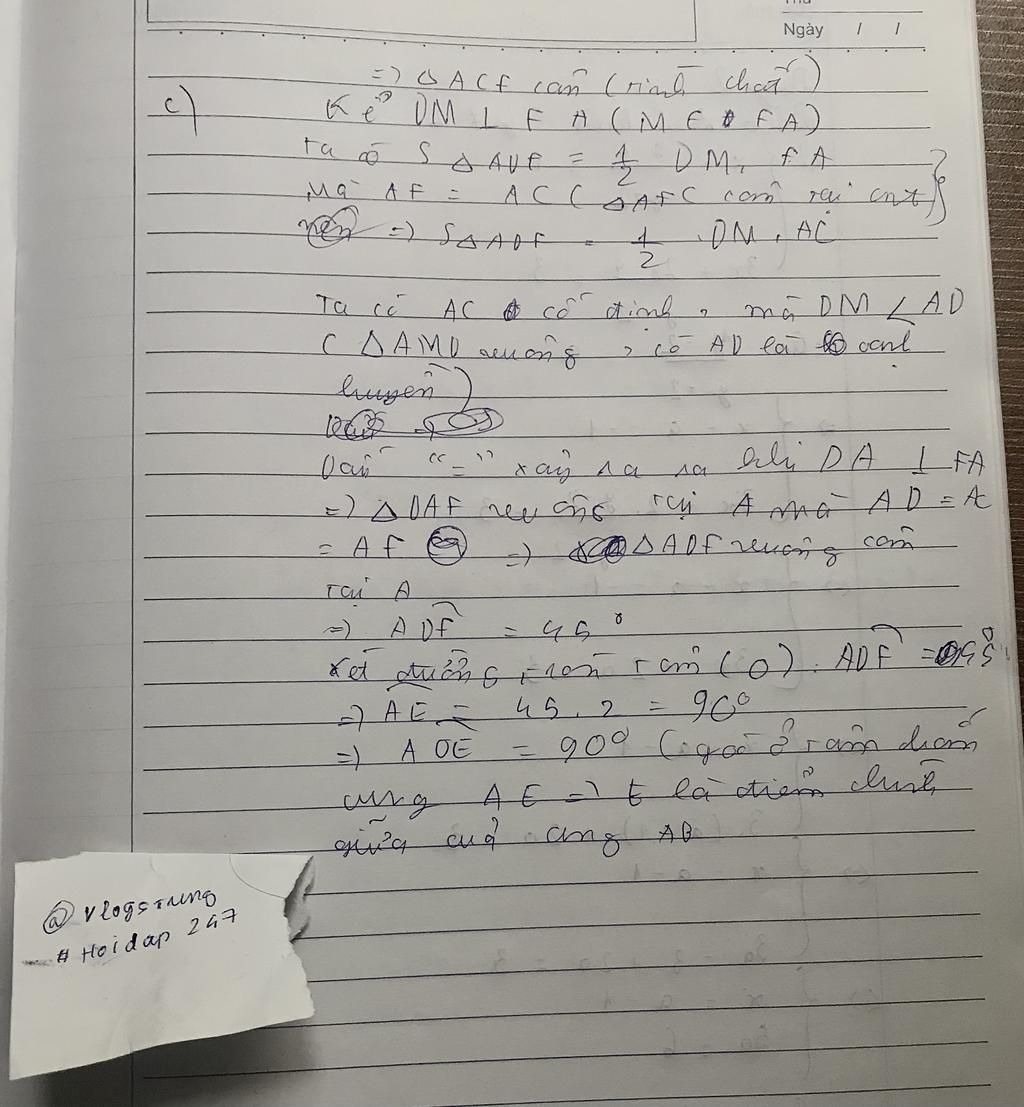 Ngày / /
=) △ ACF cân (tính chất)
c) Kẻ DM ⊥ FA (M ∈ FA)
Ta có S △ ADF = 1/2 DM . FA
Mà AF = AC (△ AFC cân tại cmt)
=) S △ ADF = 1/2 . DM . AC
Ta có AC cố định, mà DM < AD
( △ AMD vuông, có AD là cạnh
huyền)
Dấu "=" xảy ra ra khi DA ⊥ FA
=) △ DAF vuông tại A mà AD = AC
= AF =) △ ADF vuông cân
tại A
=) ADF = 45°
Xét đường tròn tâm (O) . ADF = 45°
=) AE = 45 . 2 = 90°
=) AOE = 90° (góc ở tâm chắn
cung AE =) E là điểm chính
giữa của cung AB
@ Vlogstrung
# Hoidap 247